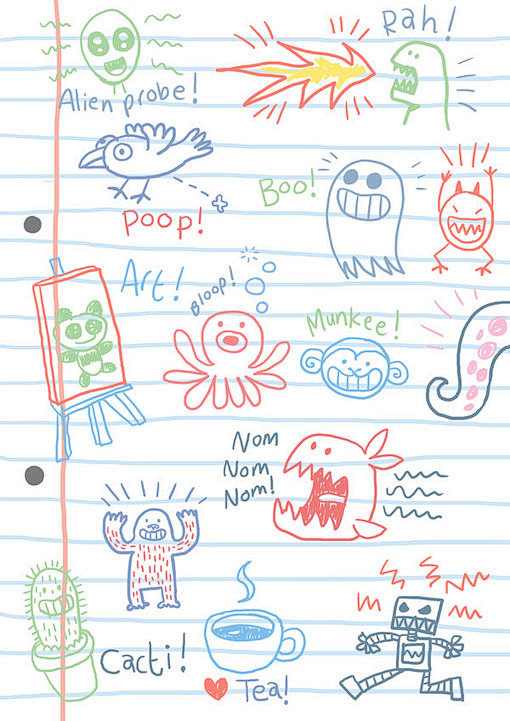 Rah!
Alien probe!
Boo!
Poop!
Art!
Bloop!
Munkee!
Nom
Nom
Nom!
Cacti!
Tea!